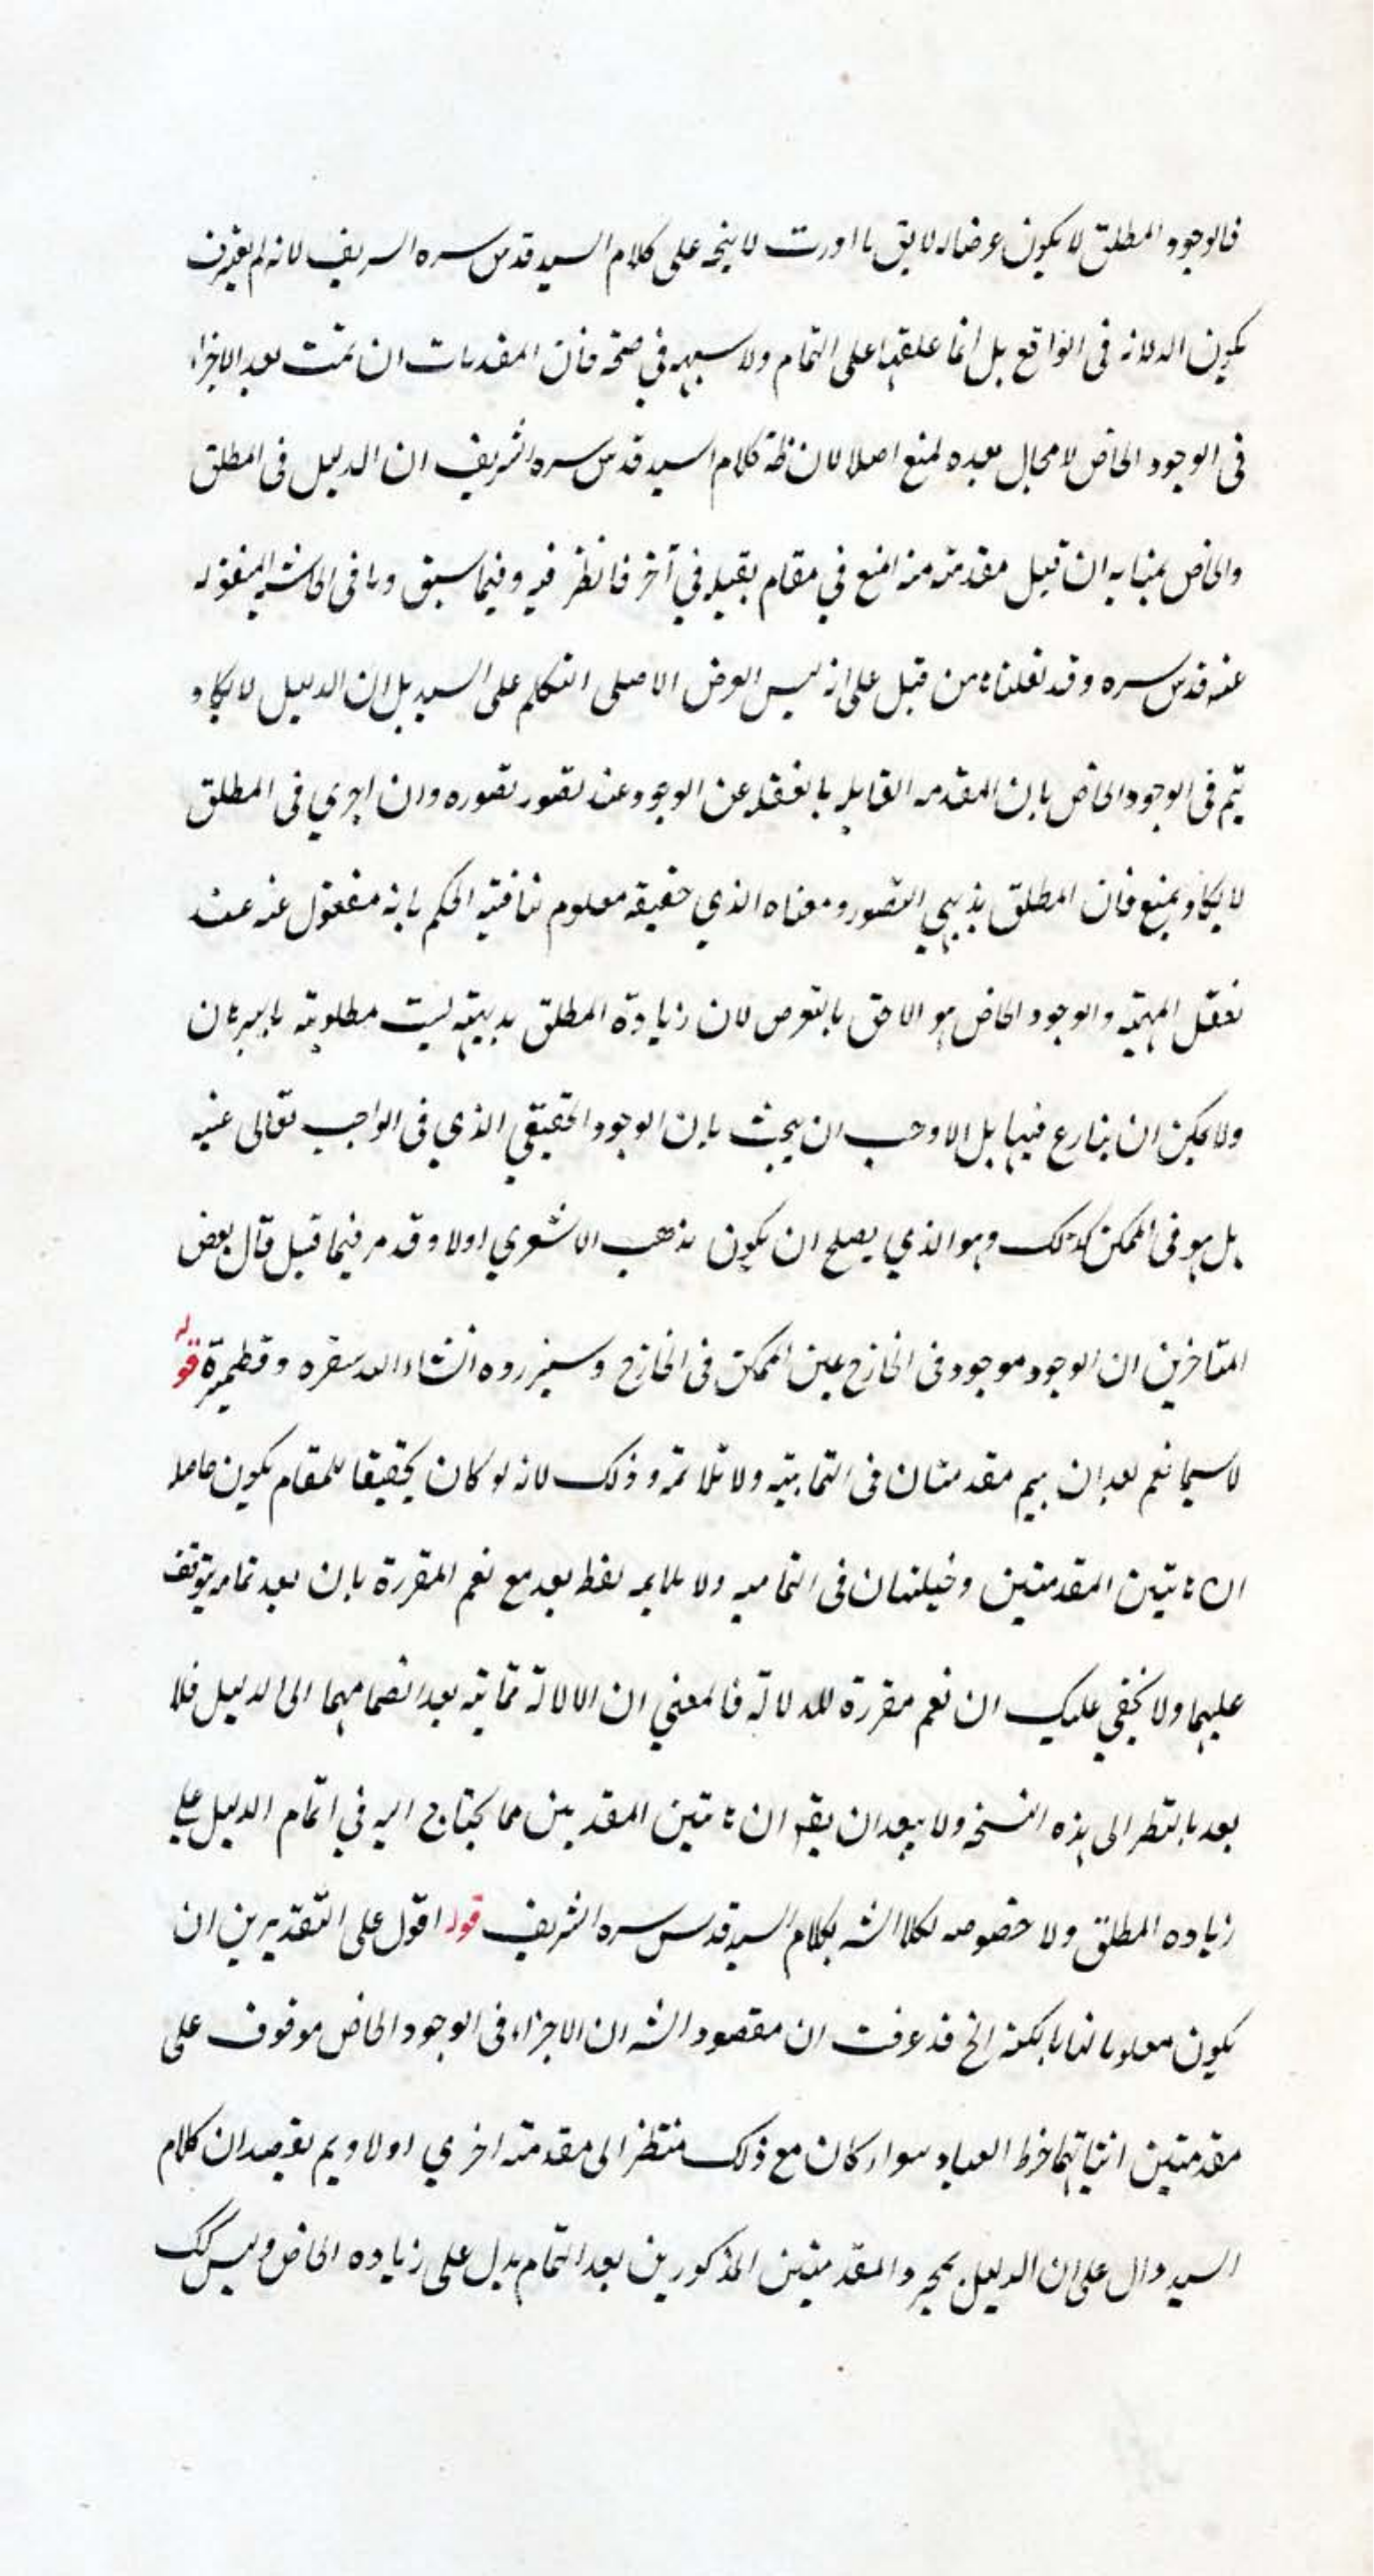 فالوجود المطلق لا يكون عرضا له لا يق ما اورت لا يتجه على كلام السيد قدس سره الشريف لانه لم يعترف
بكون الدلالة فى الواقع بل انما علقها على التمام ولا سبهة في صحته فان المقدمات ان تمت بعد الاجراء
فى الوجود الخاص لا مجال بعده لمنع اصلا لان كلام السيد قدس سره الشريف ان الدليل فى المطلق
والخاص بمثابه ان قبل مقدمته منه المنع في مقام يقبله في آخر فانظر فيه وفيما سبق وما فى الحاشيه المنقوله
عنه قدس سره وقد نقلناه من قبل على انه ليس الغرض الاصلى التكلم على السيد بل ان الدليل لا يكاد
يتم فى الوجود الخاص بان المقدمه القابله بانغفل عن الوجود عند تصور تصوره وان اجري فى المطلق
لا يكاد يمنع فان المطلق بديهي التصور ومعناه الذي حقيقه معلوم ننافيه الحكم بانه مغفول عنه عند
تعقل المهيته والوجود الخاص هو الاحق بالتعرض لان زيادة المطلق بديهيته ليست مطلوبته بالبرهان
ولا يمكن ان ينازع فيها بل الاوجب ان يبحث بان الوجود الحقيقي الذي فى الواجب تعالى عنيه
بل هو فى الممكن كذلك وهو الذي يصلح ان يكون مذهب الاشعري اولا وقد مر فيما قبل قال بعض
المتاخرين ان الوجود موجود فى الخارج عين الممكن فى الخارج وسنزروه انشاء الله سقره وقطميرة قوله
لا سيما نعم بعد ان مقدمتان فى التمامية ولا تلائمه وذلك لانه لو كان تحقيقا للمقام يكون حاصله
ان هاتين المقدمتين دخيلتان فى التماميه ولا يلايمه لفظ بعد مع نعم المقررة بان بعد تمامه يتوقف
عليهما ولا يخفي عليك ان نعم مقررة للدلالة فالمعني ان الالالة تمامية بعد انضمامهما الى الدليل فلا
بعد بالنظر الى هذه النسخه ولا يبعد ان يقه ان هاتين المقدمين مما يحتاج اليه في اتمام الدليل علي
زياده المطلق ولا خصوصه لكلا الشه بكلام السيد قدس سره الشريف قوله اقول على التقديرين ان
يكون معلوما لنا بالكنه الخ قد عرفت ان مقصود الشه ان الاجراء فى الوجود الخاص موقوف على
مقدمتين اثباتهما خرط العباد سواء كان مع ذلك منتظرا لى مقدمته اخري اولا ولم يقصد ان كلام
السيد دال على ان الدليل بمجرد المقدمتين المذكورين بعد التمام يدل على زياده الخاص وليس كك